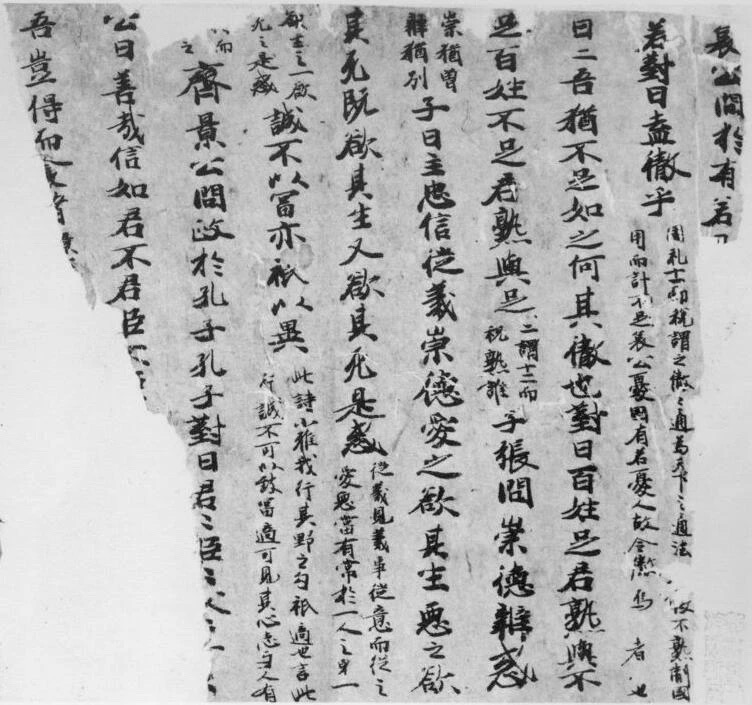 哀公問於有若曰
若對曰盍徹乎
周礼十一而税謂之徹々通為天下之通法
用而計不足哀公憂國有若憂人故令徹焉者也
曰二吾猶不足如之何其徹也對曰百姓足君熟與不
足百姓不足君熟與足
二謂十二而
税熟誰
子張問崇德辯惑
崇猶曽
辯猶别
子曰主忠信從義崇德愛之欲其生惡之欲
其死既欲其生又欲其死是惑
從義見義事從意而從之
愛惡當有常於一人之身一
欲生之一欲
死之是惑
誠不以冨亦祇以異
此詩小雅我行其野之句祇適也言此
行誠不可以致冨適可見其心志与人有
齊景公問政於孔子孔子對曰君々臣々父々
公曰善哉信如君不君臣不
吾豈得而食諸